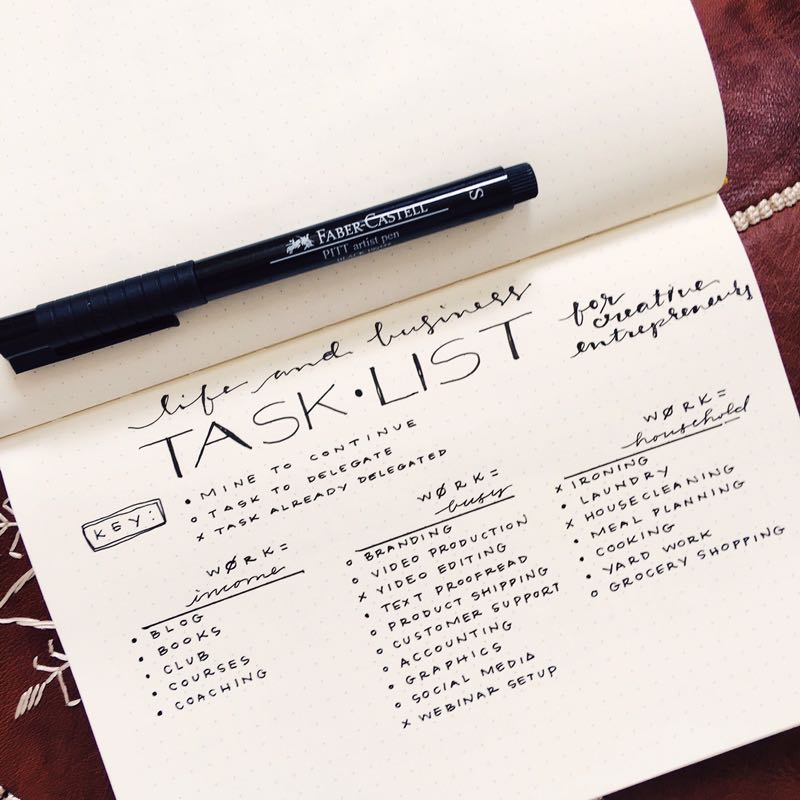 FABER-CASTELL
PITT artist pen
S
life and business
TASK • LIST
for creative
entrepreneurs
KEY:
• MINE TO CONTINUE
o TASK TO DELEGATE
x TASK ALREADY DELEGATED
WØRK=
income
• BLOG
• BOOKS
• CLUB
• COURSES
• COACHING
WØRK=
busy
o BRANDING
o VIDEO PRODUCTION
x VIDEO EDITING
• TEXT PROOFREAD
o PRODUCT SHIPPING
o CUSTOMER SUPPORT
o ACCOUNTING
• GRAPHICS
o SOCIAL MEDIA
x WEBINAR SETUP
WØRK=
household
x IRONING
• LAUNDRY
x HOUSECLEANING
• MEAL PLANNING
• COOKING
• YARD WORK
o GROCERY SHOPPING